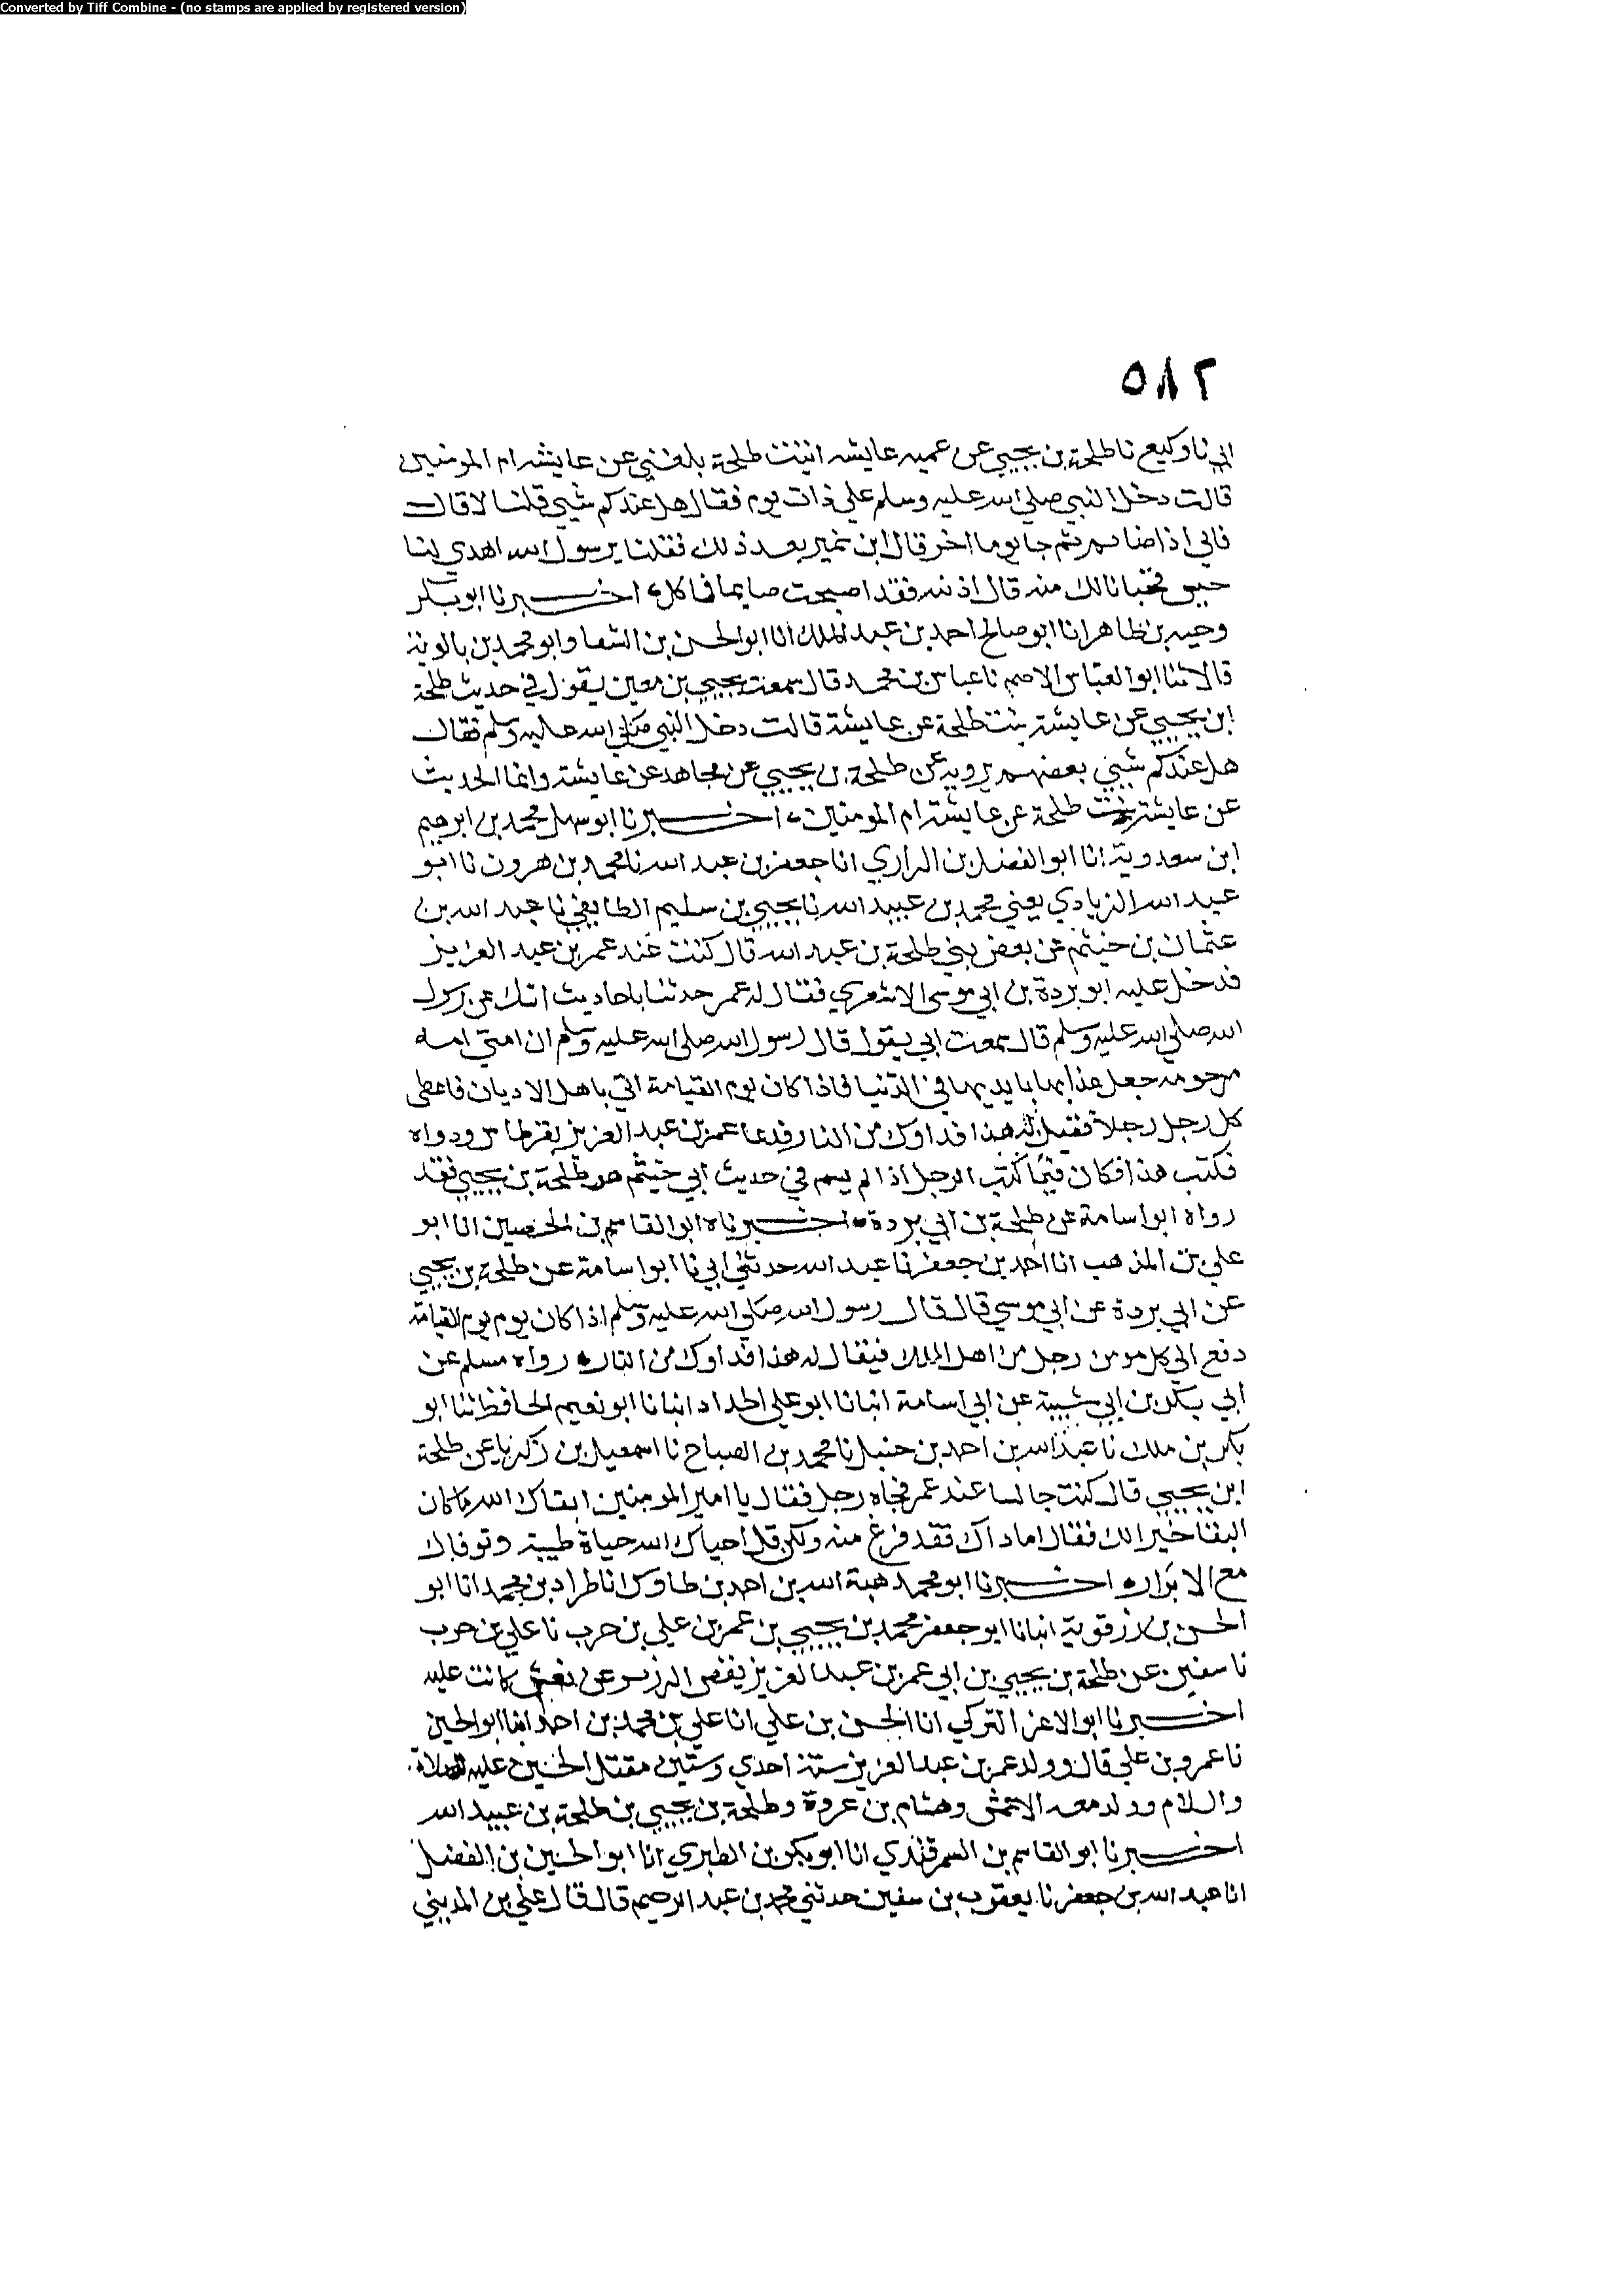 Converted by Tiff Combine - (no stamps are applied by registered version)
٥٨٢
ابي نا وكيع نا طلحة بن يحيي عن عمته عايشه ابنت طلحة بلغني عن عايشه ام المومنين
قالت دخل النبي صلي الله عليه وسلم علي ذات يوم فقال هل عندكم شي قلنا لا قال
فاني اذا صايم ثم جا يوما اخر قال ابن نمير بعد ذلك فقلنا يرسول الله اهدي لنا
حيس فخبانا لك منه قال ادنه فقد اصبحت صايما فاكل اخبرنا ابو بكر
وجيه بن طاهر انا ابو صالح احمد بن عبد الملك انا ابو الحسن بن السقا وابو محمد بن بالوية
قالا ثنا ابو العباس الاصم نا عباس بن محمد قال سمعت يحيي بن معين يقول في حديث طلحة
ابن يحيي عن عايشة بنت طلحة عن عايشة قالت دخل النبي صلي الله عليه وسلم فقال
هل عندكم شيي بعضهم يرويه عن طلحة بن يحيي عن مجاهد عن عايشة وانما الحديث
عن عايشة بنت طلحة عن عايشة ام المومنين اخبرنا ابو سهل محمد بن ابرهيم
ابن سعدوية انا ابو الفضل بن الرازي انا جعفر بن عبد الله نا محمد بن هرون نا ابو
عبد الله الزيادي يعني محمد بن عبيد الله نا يحيي بن سليم الطايفي نا عبد الله بن
عثمان بن خيثم عن بعض بني طلحة بن عبد الله قال كنت عند عمر بن عبد العزيز
فدخل عليه ابو بردة بن ابي موسى الاشعري فقال له عمر حدثنا باحاديث ابيك عن رسول
الله صلي الله عليه وسلم قال سمعت ابي يقول قال رسول الله صلى الله عليه وسلم ان امتي امه
مرحومه جعل عذابها بايديها في الدنيا فاذا كان يوم القيامة اتي باهل الاديان فاعطى
كل رجل رجلا فقيل له هذا فداوك من النار فدعا عمر بن عبد العزيز بقرطاس ودواه
فكتب هذا فكان فيما كتب الرجل اذا لم يسم في حديث ابي خيثم هو طلحة بن يحيي فقد
رواه ابو اسامة عن طلحة بن ابي بردة اخبرناه ابو القاسم بن الحصين انا ابو
علي بن المذهب انا احمد بن جعفر نا عبد الله حدثني ابي نا ابو اسامة عن طلحة بن يحيي
عن ابي بردة عن ابي موسي قال قال رسول الله صلى الله عليه وسلم اذا كان يوم يوم القيامة
دفع الي كل مومن رجل من اهل الملل فيقال له هذا فداوك من النار رواه مسلم عن
ابي بكر بن ابي شيبة عن ابي اسامة انبانا ابو علي الحداد انبانا ابو نعيم الحافظ ثنا ابو
بكر بن ملك نا عبد الله بن احمد بن حنبل نا محمد بن الصباح نا اسمعيل بن زكريا عن طلحة
ابن يحيي قال كنت جالسا عند عمر فجاه رجل فقال يا امير المومنين ابقاك الله ما كان
البقا خيرا لك فقال اما ذاك فقد فرغ منه ولكن قل احياك الله حياة طيبة وتوفاك
مع الابرار اخبرنا ابو محمد هبة الله بن احمد بن طاوس انا طراد بن محمد انا ابو
الحسن بن رزقوية انبانا ابو جعفر محمد بن يحيي بن عمر بن علي بن حرب نا علي بن حرب
نا سفين عن طلحة بن يحيي بن ابي عمر بن عبد العزيز يقضى عن كانت عليه
اخبرنا ابو الاعز التركي انا الحسن بن علي انا علي بن محمد بن احمد ابنا ابو الحسين
نا عمرو بن علي قال وولد عمر بن عبد العزيز سنة احدي وستين مقتل الحسين عليه الصلاة
والسلام وولد معه الاعمش وهشام بن عروة وطلحة بن يحيي بن طلحة بن عبيد الله
اخبرنا ابو القاسم بن السمرقندي انا ابو بكر بن الطبري انا ابو الحسين بن الفضل
انا عبد الله بن جعفر نا يعقوب بن سفين حدثني محمد بن عبد الرحيم قال قال علي بن المديني